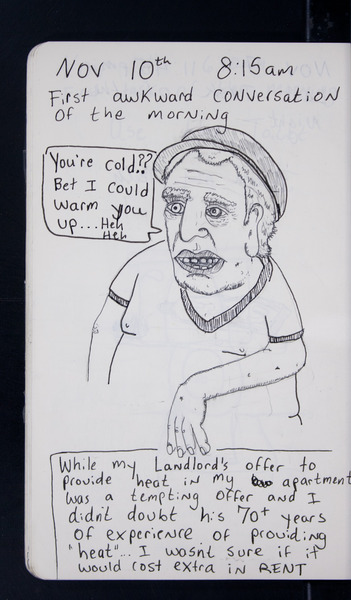 Nov 10th 8:15am
First awkward conversation
of the morning
You're cold??
Bet I could
warm you
up...Heh
Heh
While my Landlord's offer to
provide heat in my apartment
was a tempting offer and I
didn't doubt his 70+ years
of experience of providing
"heat"... I wasnt sure if it
would cost extra in RENT